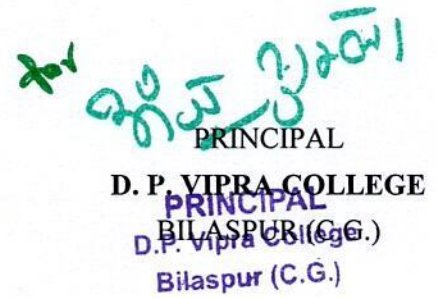 for
PRINCIPAL
D. P. VIPRA COLLEGE
BILASPUR (C.G.)
PRINCIPAL
D.P. Vipra College
Bilaspur (C.G.)